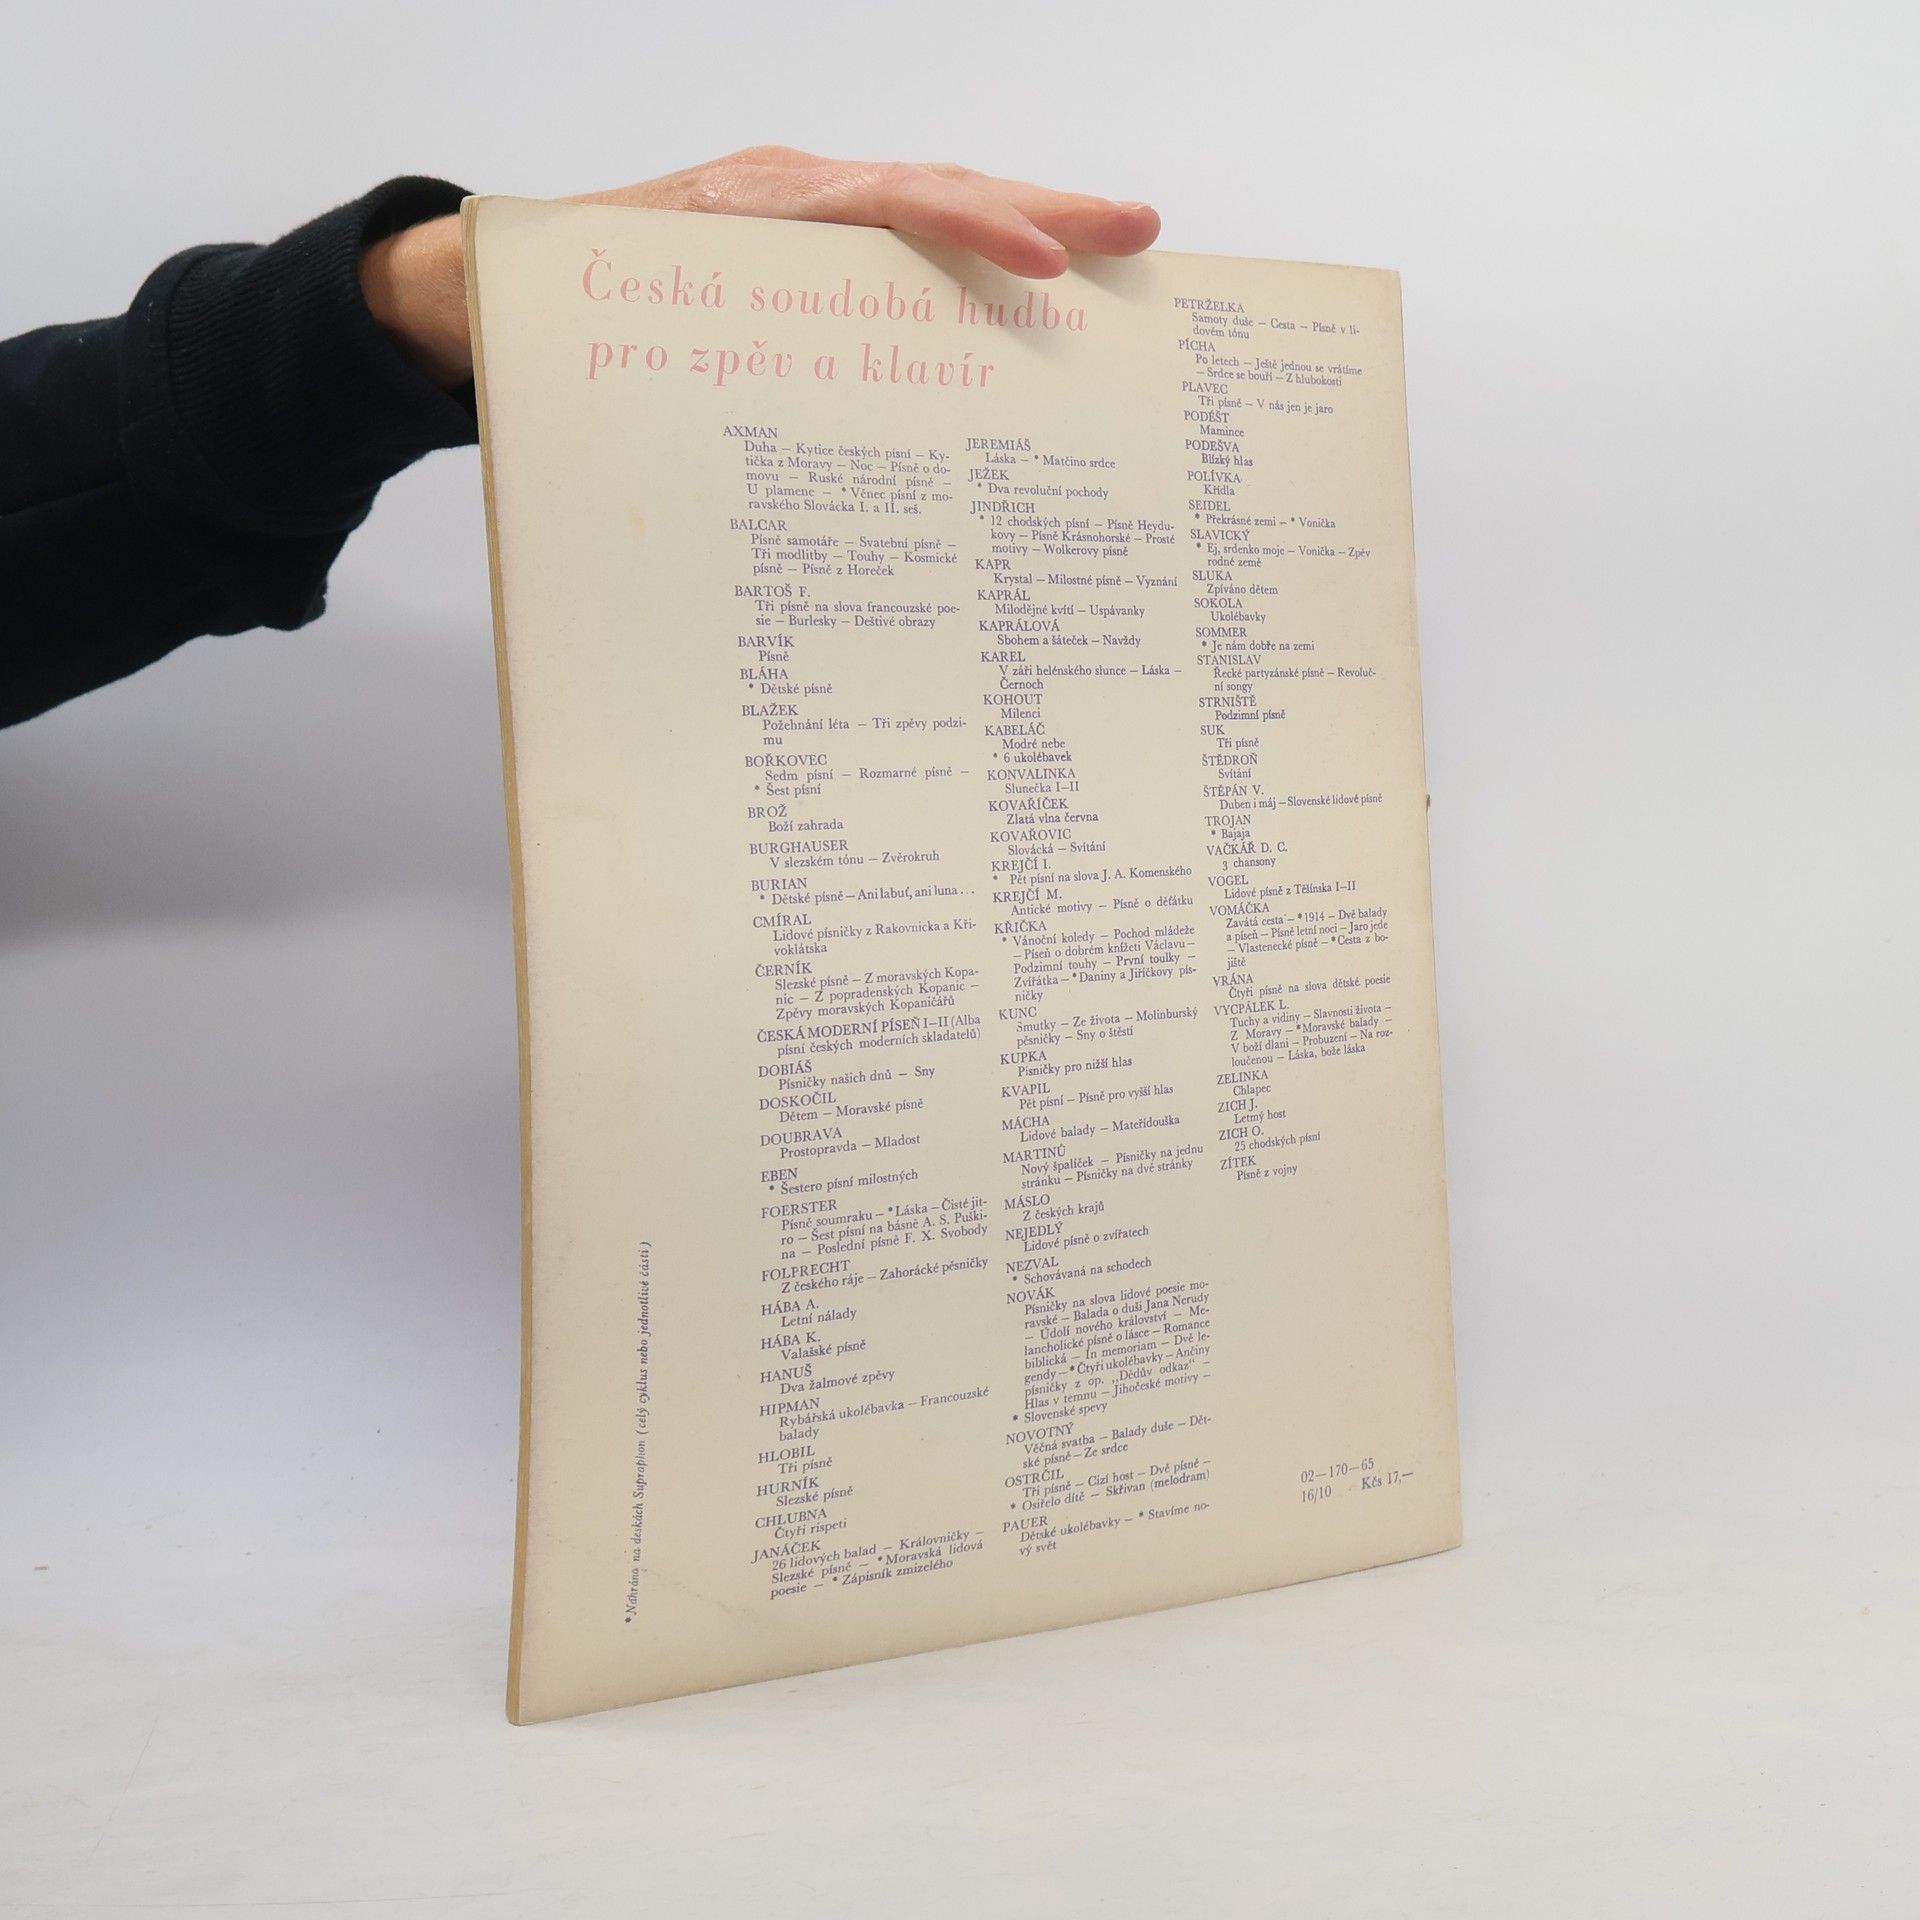 Česká soudobá hudba
pro zpěv a klavír
AXMAN
Duha – Kytice českých písní – Ky-
tička z Moravy – Noc – Písně o do-
movu – Ruské národní písně –
U plamene – * Věnec písní z mo-
ravského Slovácka I. a II. seš.
BALCAR
Písně samotáře – Svatební písně –
Tři modlitby – Touhy – Kosmické
písně – Písně z Horeček
BARTOŠ F.
Tři písně na slova francouzské poe-
sie – Burlesky – Deštivé obrazy
BARVÍK
Písně
BLÁHA
* Dětské písně
BLAŽEK
Požehnání léta – Tři zpěvy podzi-
mu
BOŘKOVEC
Sedm písní – Rozmarné písně –
* Šest písní
BROŽ
Boží zahrada
BURGHAUSER
V slezském tónu – Zvěrokruh
BURIAN
* Dětské písně – Ani labuť, ani luna . . .
CMÍRAL
Lidové písničky z Rakovnicka a Kři-
voklátska
ČERNÍK
Slezské písně – Z moravských Kopa-
nic – Z popradenských Kopanic –
Zpěvy moravských Kopaničářů
ČESKÁ MODERNÍ PÍSEŇ I–II (Alba
písní českých moderních skladatelů)
DOBIÁŠ
Písničky našich dnů – Sny
DOSKOČIL
Dětem – Moravské písně
DOUBRAVA
Prostopravda – Mladost
EBEN
* Šestero písní milostných
FOERSTER
Písně soumraku – * Láska – Čisté jit-
ro – Šest písní na básně A. S. Puški-
na – Poslední písně F. X. Svobody
FOLPRECHT
Z českého ráje – Zahorácké pěsničky
HÁBA A.
Letní nálady
HÁBA K.
Valašské písně
HANUŠ
Dva žalmové zpěvy
HIPMAN
Rybářská ukolébavka – Francouzské
balady
HLOBIL
Tři písně
HURNÍK
Slezské písně
CHLUBNA
Čtyři rispeti
JANÁČEK
26 lidových balad – Královničky –
Slezské písně – * Moravská lidová
poesie – * Zápisník zmizelého
JEREMIÁŠ
Láska – * Matčino srdce
JEŽEK
* Dva revoluční pochody
JINDŘICH
* 12 chodských písní – Písně Heydu-
kovy – Písně Krásnohorské – Prosté
motivy – Wolkerovy písně
KAPR
Krystal – Milostné písně – Vyznání
KAPRÁL
Milodějné kvítí – Uspávanky
KAPRÁLOVÁ
Sbohem a šáteček – Navždy
KAREL
V záři helénského slunce – Láska –
Černoch
KOHOUT
Milenci
KABELÁČ
Modré nebe
* 6 ukolébavek
KONVALINKA
Slunečka I–II
KOVAŘÍČEK
Zlatá vlna června
KOVAŘOVIC
Slovácká – Svítání
KREJČÍ I.
* Pět písní na slova J. A. Komenského
KREJČÍ M.
Antické motivy – Písně o děťátku
KŘIČKA
* Vánoční koledy – Pochod mládeže
– Píseň o dobrém knížeti Václavu –
Podzimní touhy – První toulky –
Zvířátka – * Daniny a Jiříčkovy pís-
ničky
KUNC
Smutky – Ze života – Molinburský
pěsničky – Sny o štěstí
KUPKA
Písničky pro nižší hlas
KVAPIL
Pět písní – Písně pro vyšší hlas
MÁCHA
Lidové balady – Mateřídouška
MARTINŮ
Nový špalíček – Písničky na jednu
stránku – Písničky na dvě stránky
MÁSLO
Z českých krajů
NEJEDLÝ
Lidové písně o zvířatech
NEZVAL
* Schovávaná na schodech
NOVÁK
Písničky na slova lidové poesie mo-
ravské – Balada o duši Jana Nerudy
– Údolí nového království – Me-
lancholické písně o lásce – Romance
biblická – In memoriam – Dvě le-
gendy – * Čtyři ukolébavky – Ančiny
písničky z op. „Dědův odkaz“ –
Hlas v temnu – Jihočeské motivy –
* Slovenské spevy
NOVOTNÝ
Věčná svatba – Balady duše – Dět-
ské písně – Ze srdce
OSTRČIL
Tři písně – Cizí host – Dvě písně –
* Osiřelo dítě – Skřivan (melodram)
PAUER
Dětské ukolébavky – * Stavíme no-
vý svět
PETRŽELKA
Samoty duše – Cesta – Písně v li-
dovém tónu
PÍCHA
Po letech – Ještě jednou se vrátíme
– Srdce se bouří – Z hlubokosti
PLAVEC
Tři písně – V nás jen je jaro
PODÉŠT
Mamince
PODEŠVA
Blízký hlas
POLÍVKA
Křídla
SEIDEL
* Překrásné zemi – * Vonička
SLAVICKÝ
* Ej, srdenko moje – Vonička – Zpěv
rodné země
SLUKA
Zpíváno dětem
SOKOLA
Ukolébavky
SOMMER
* Je nám dobře na zemi
STANISLAV
Řecké partyzánské písně – Revoluč-
ní songy
STRNIŠTĚ
Podzimní písně
SUK
Tři písně
ŠTĚDROŇ
Svítání
ŠTĚPÁN V.
Duben i máj – Slovenské lidové písně
TROJAN
* Bajaja
VAČKÁŘ D. C.
3 chansony
VOGEL
Lidové písně z Těšínska I–II
VOMÁČKA
Zavátá cesta – * 1914 – Dvě balady
a píseň – Písně letní noci – Jaro jede
– Vlastenecké písně – * Cesta z bo-
jiště
VRÁNA
Čtyři písně na slova dětské poesie
VYCPÁLEK L.
Tuchy a vidiny – Slavnosti života –
Z Moravy – * Moravské balady –
V boží dlani – Probuzení – Na roz-
loučenou – Láska, bože láska
ZELINKA
Chlapec
ZICH J.
Letmý host
ZICH O.
25 chodských písní
ZÍTEK
Písně z vojny
* Nahráno na deskách Supraphon (celý cyklus nebo jednotlivé části)
02—170—65
16/10 Kčs 17,—